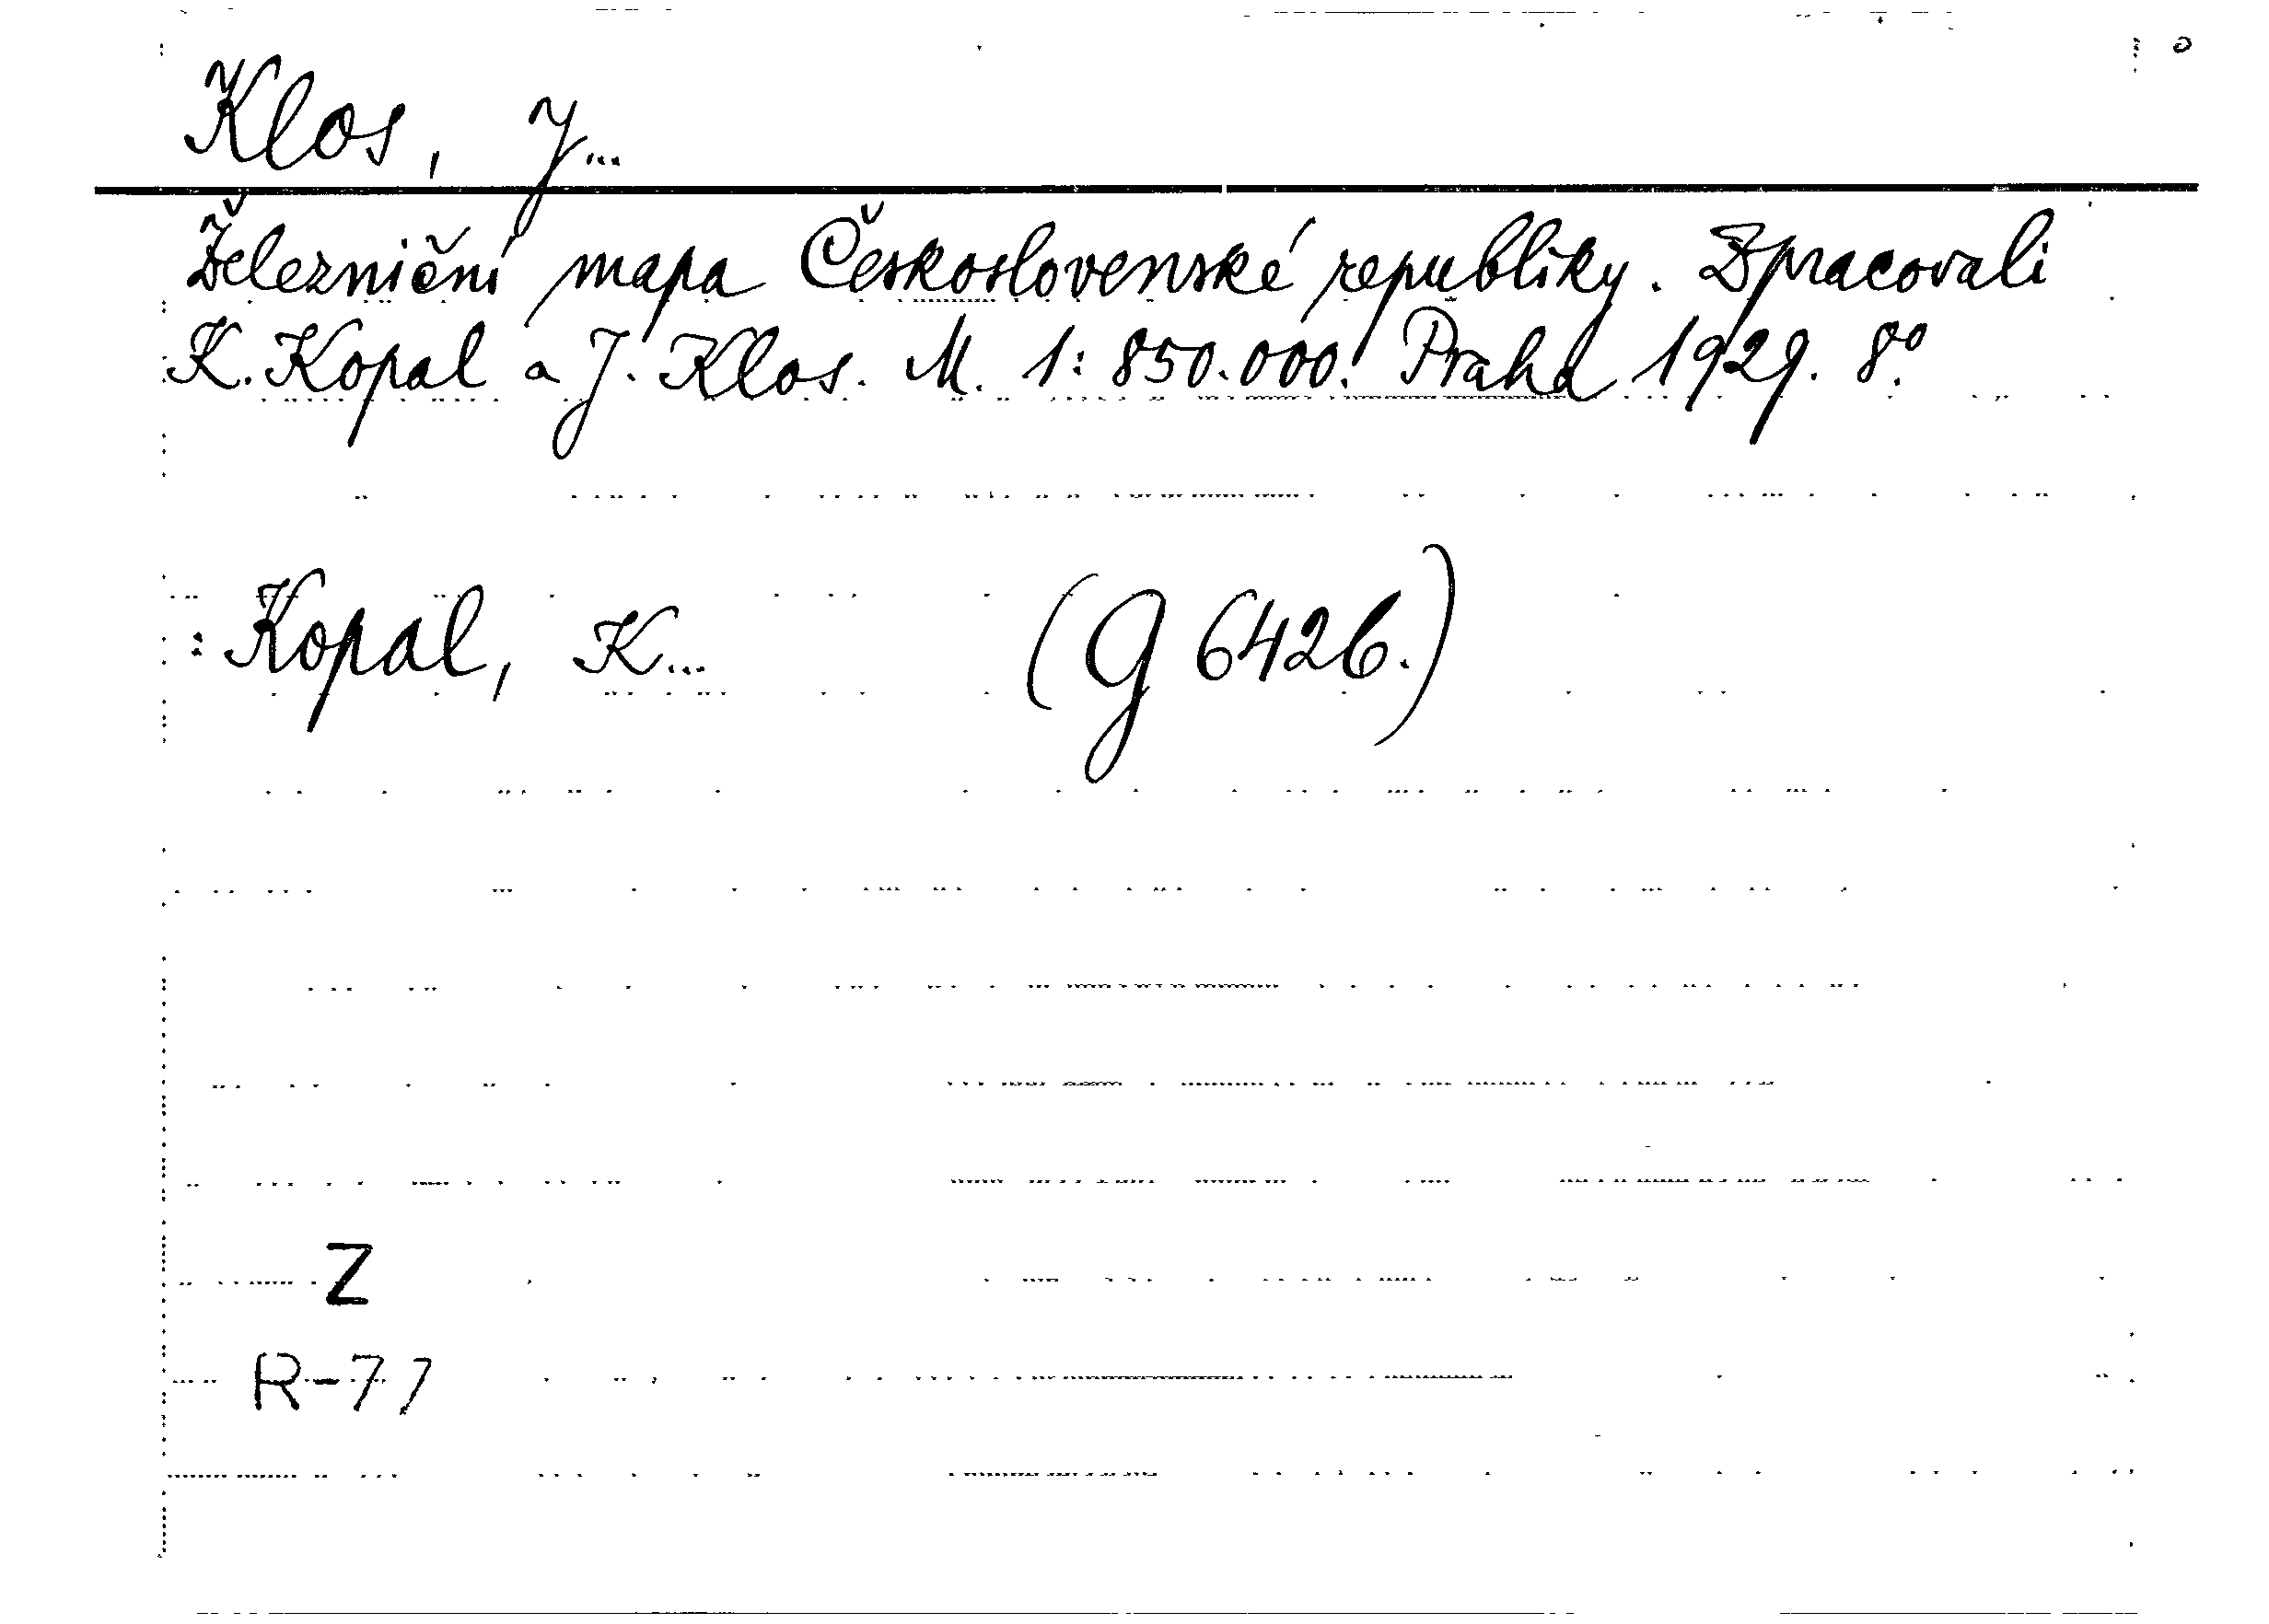 Klos, J...
Železniční mapa Československé republiky. Zpracovali
K. Kopal a J. Klos. M. 1:850.000. Praha 1929. 8°.
: Kopal, K... (G 6426.)
Z
R-77